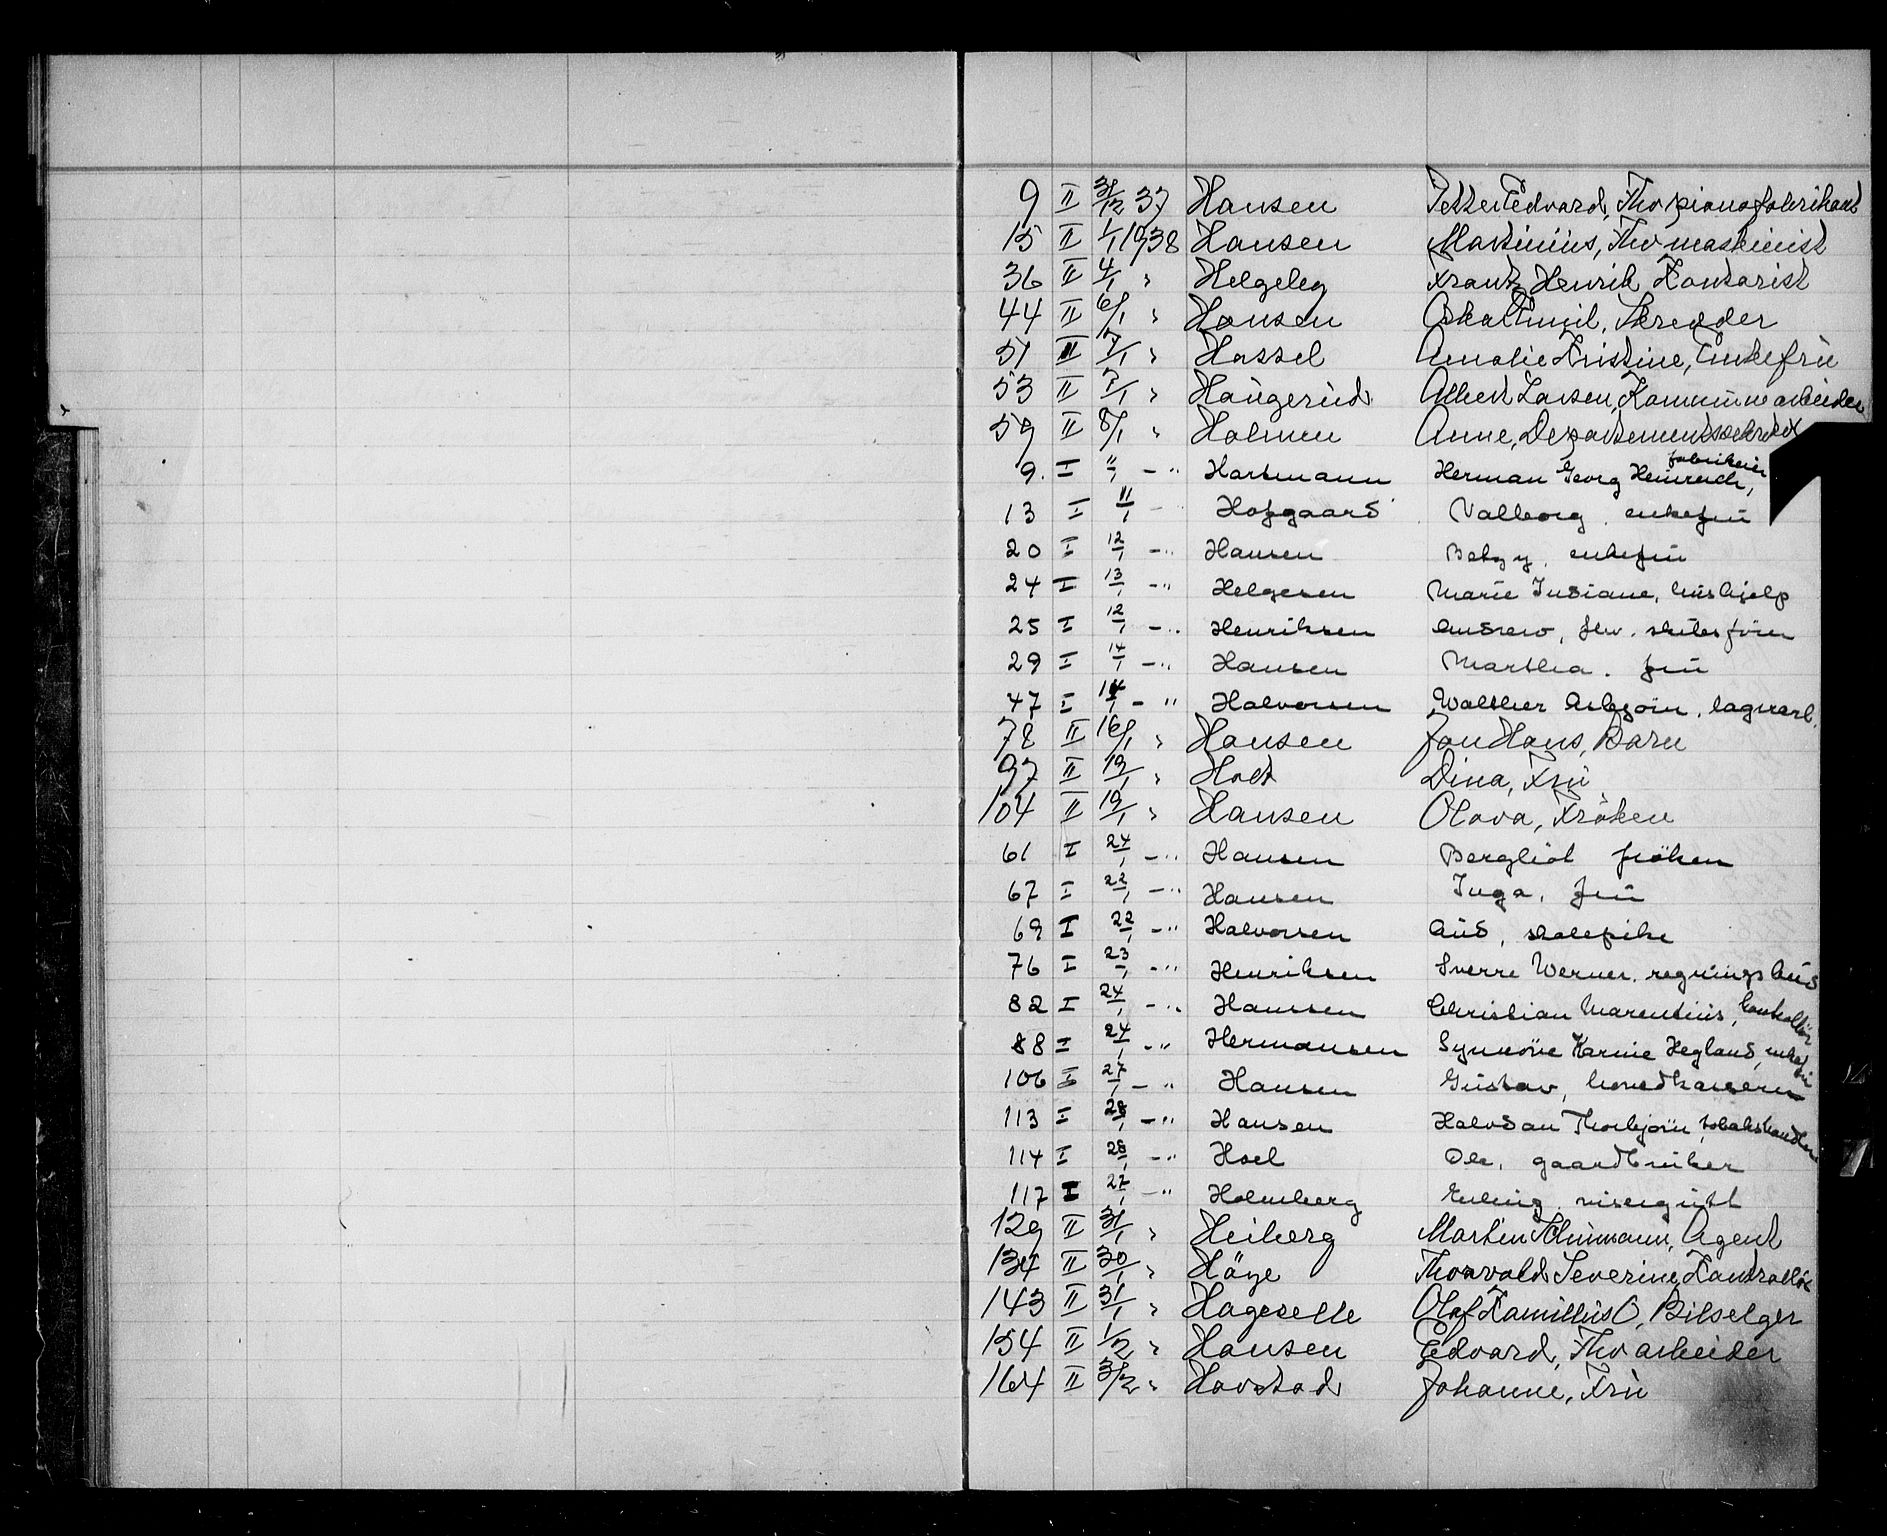 9 II 31/12 37 Hansen Petter Edvard, Fhv pianofabrikant
15 II 1/1 1938 Hansen Martinius, Fhv maskinist
36 II 4/1 " Helgeley Frantz Henrik Kontorist
44 II 6/1 " Hansen Oskar Emil, Skredder
51 II 7/1 " Hassel Amalie Kristine, Enkefrü
53 II 7/1 " Haügerüd Albert Larsen, Kommünearbeider
59 II 8/1 " Holmen Anne, Departementssekret
9. I "/1 - " Hartmann Herman Georg Heinrich, fabrikeier
13 I 11/1 - " Hofgaard Valborg. enkefrü
20 I 12/1 - " Hansen Betzy. enkefrü
24 I 13/1 - " Helgesen Marie Indiane, hüshjelp
25 I 12/1 - " Henriksen Andrew, fhv.
29 I 14/1 - " Hansen Martha. frü
47 I 14/1 - " Halvorsen Walther Asbjörn. lagerarb.
78 II 16/1 " Hansen Jan Hans, Barn
97 II 19/1 " Holt Dina, Frü
104 II 19/1 " Hansen Olava, Fröken
61 I 24/1 - " Hansen Bergliot fröken
67 I 22/1 - " Hansen Inga. frü
69 I 22/1 - " Halvorsen Aüd, skolepike
76 I 23/1 - " Henriksen Sverre Werner. regningsbüd
82 I 24/1 - " Hanssen Christian Marentius, kontrollör
88 I 24/1 - " Hermansen Synnöve Karine Hegland, enkefrü
106 I 27/1 - " Hansen Güstav, hovedkasserer
113 I 28/1 - " Hansen Halvdan Thorbjörn, tobakshandler
114 I 28/1 - " Hoel Ole, gaardbrüker
117 I 27/1 - " Holmberg Erling. visergütt
129 II 31/1 " Heiberg Martin Agent
134 II 30/1 " Höye Thorvald Severin, Kontrollör
143 II 31/1 " Hageselle Olaf Kamillüs O, Bilselger
154 II 1/2 " Hansen Edvard, Fhv arbeider
164 II 3/2 " Havstad Johanne, Frü